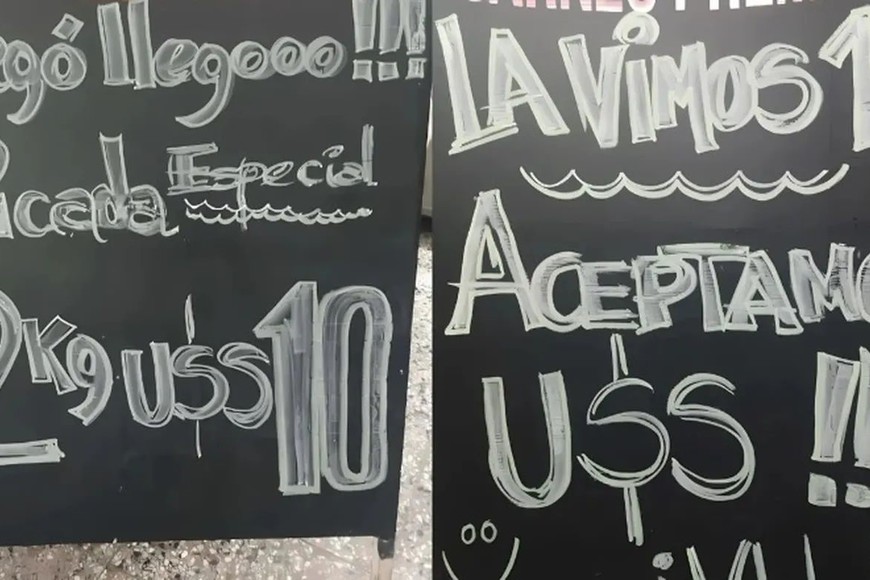 egó llegooo!!!
Picada Especial
2Kg U$S 10
LA VIMOS 1
ACEPTAMO
U$S !!